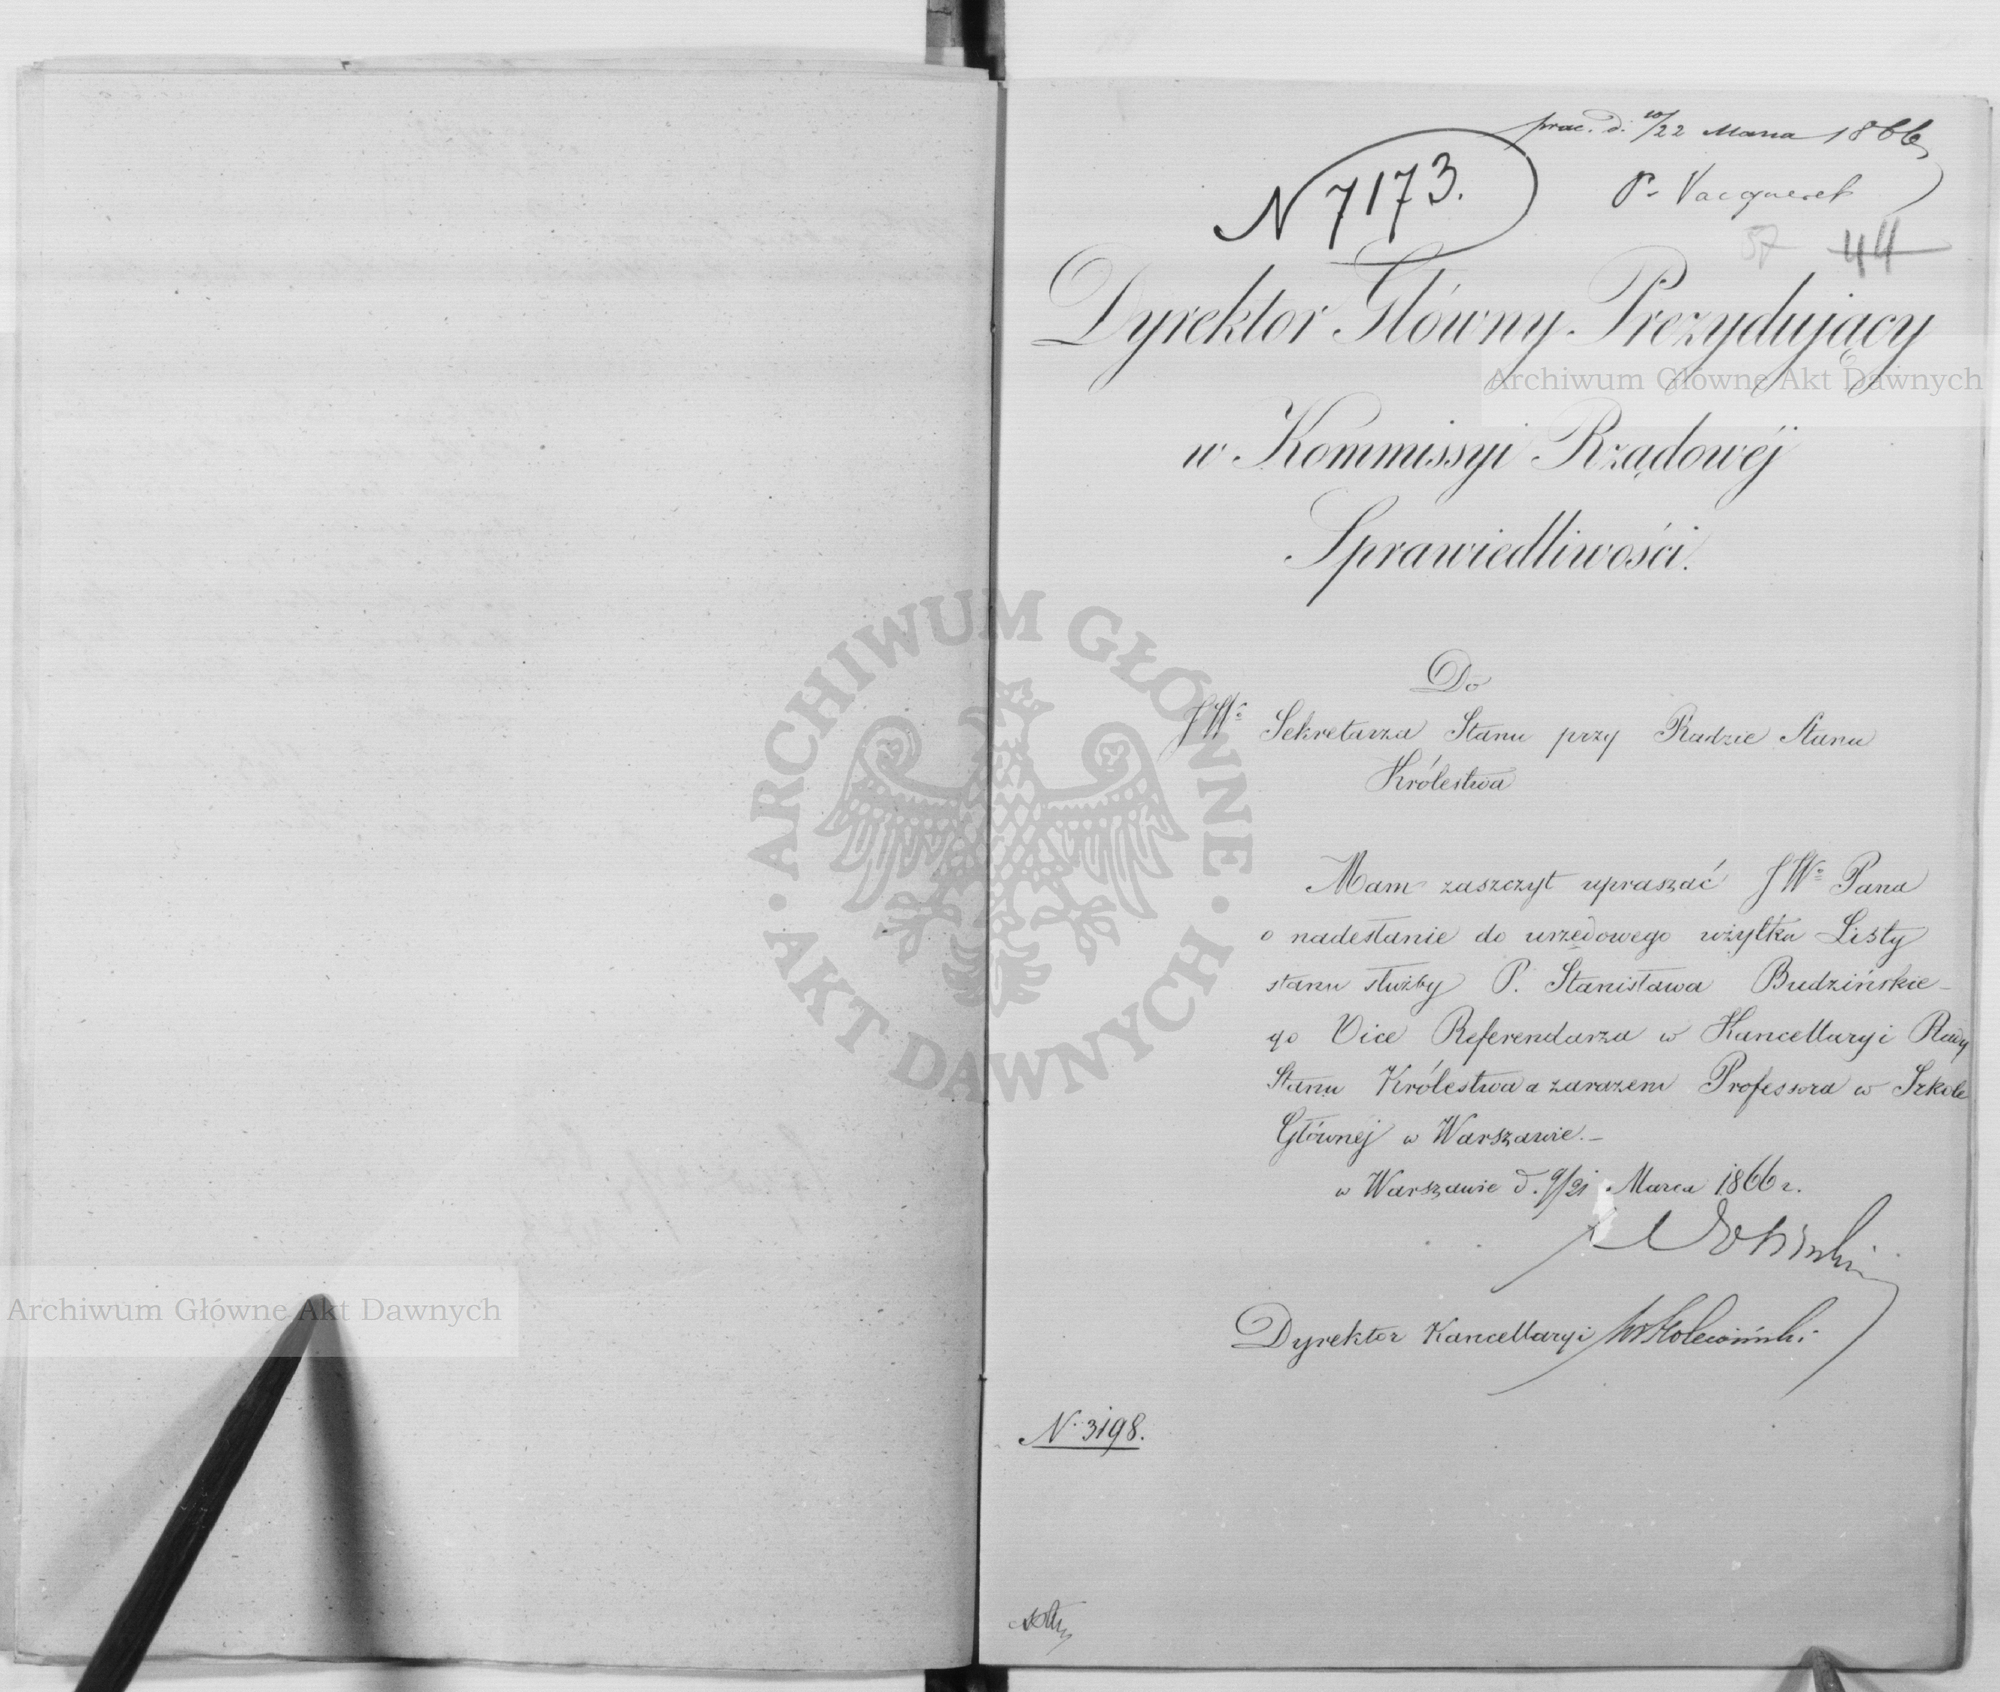 d. 10/22 Marca 1866
N 7173.
P. Vacqueret
57 44
Dyrektor Główny Prezydujący
w Kommissyi Rządowéj
Sprawiedliwości.
Do
JWº Sekretarza Stanu przy Radzie Stanu
Królestwa
Mam zaszczyt upraszać JWº Pana
o nadesłanie do urzędowego użytku Listy
stanu służby P. Stanisława Budzińskie-
go Vice Referendarza w Kancellaryi Rady
Stanu Królestwa a zarazem Professora w Szkole
Głównéj w Warszawie.-
w Warszawie d. 9/21 Marca 1866 r.
Dyrektor Kancellaryi
N. 3198.
Archiwum Główne Akt Dawnych
Archiwum Główne Akt Dawnych
ARCHIWUM GŁÓWNE · AKT DAWNYCH ·